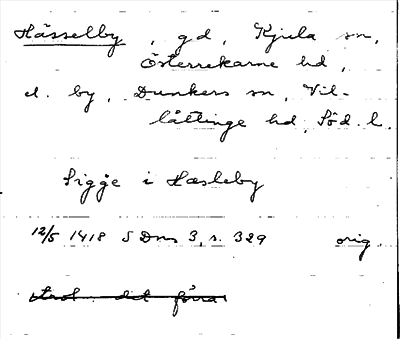 Hässelby, gd, Kjula sn,
Österrekarne hd,
el. by, Dunkers sn, Vil-
låttinge hd, Söd. l.
Sigge i Hæsleby
12/5 1418 SDns 3, s. 329 orig.
trol. det förra